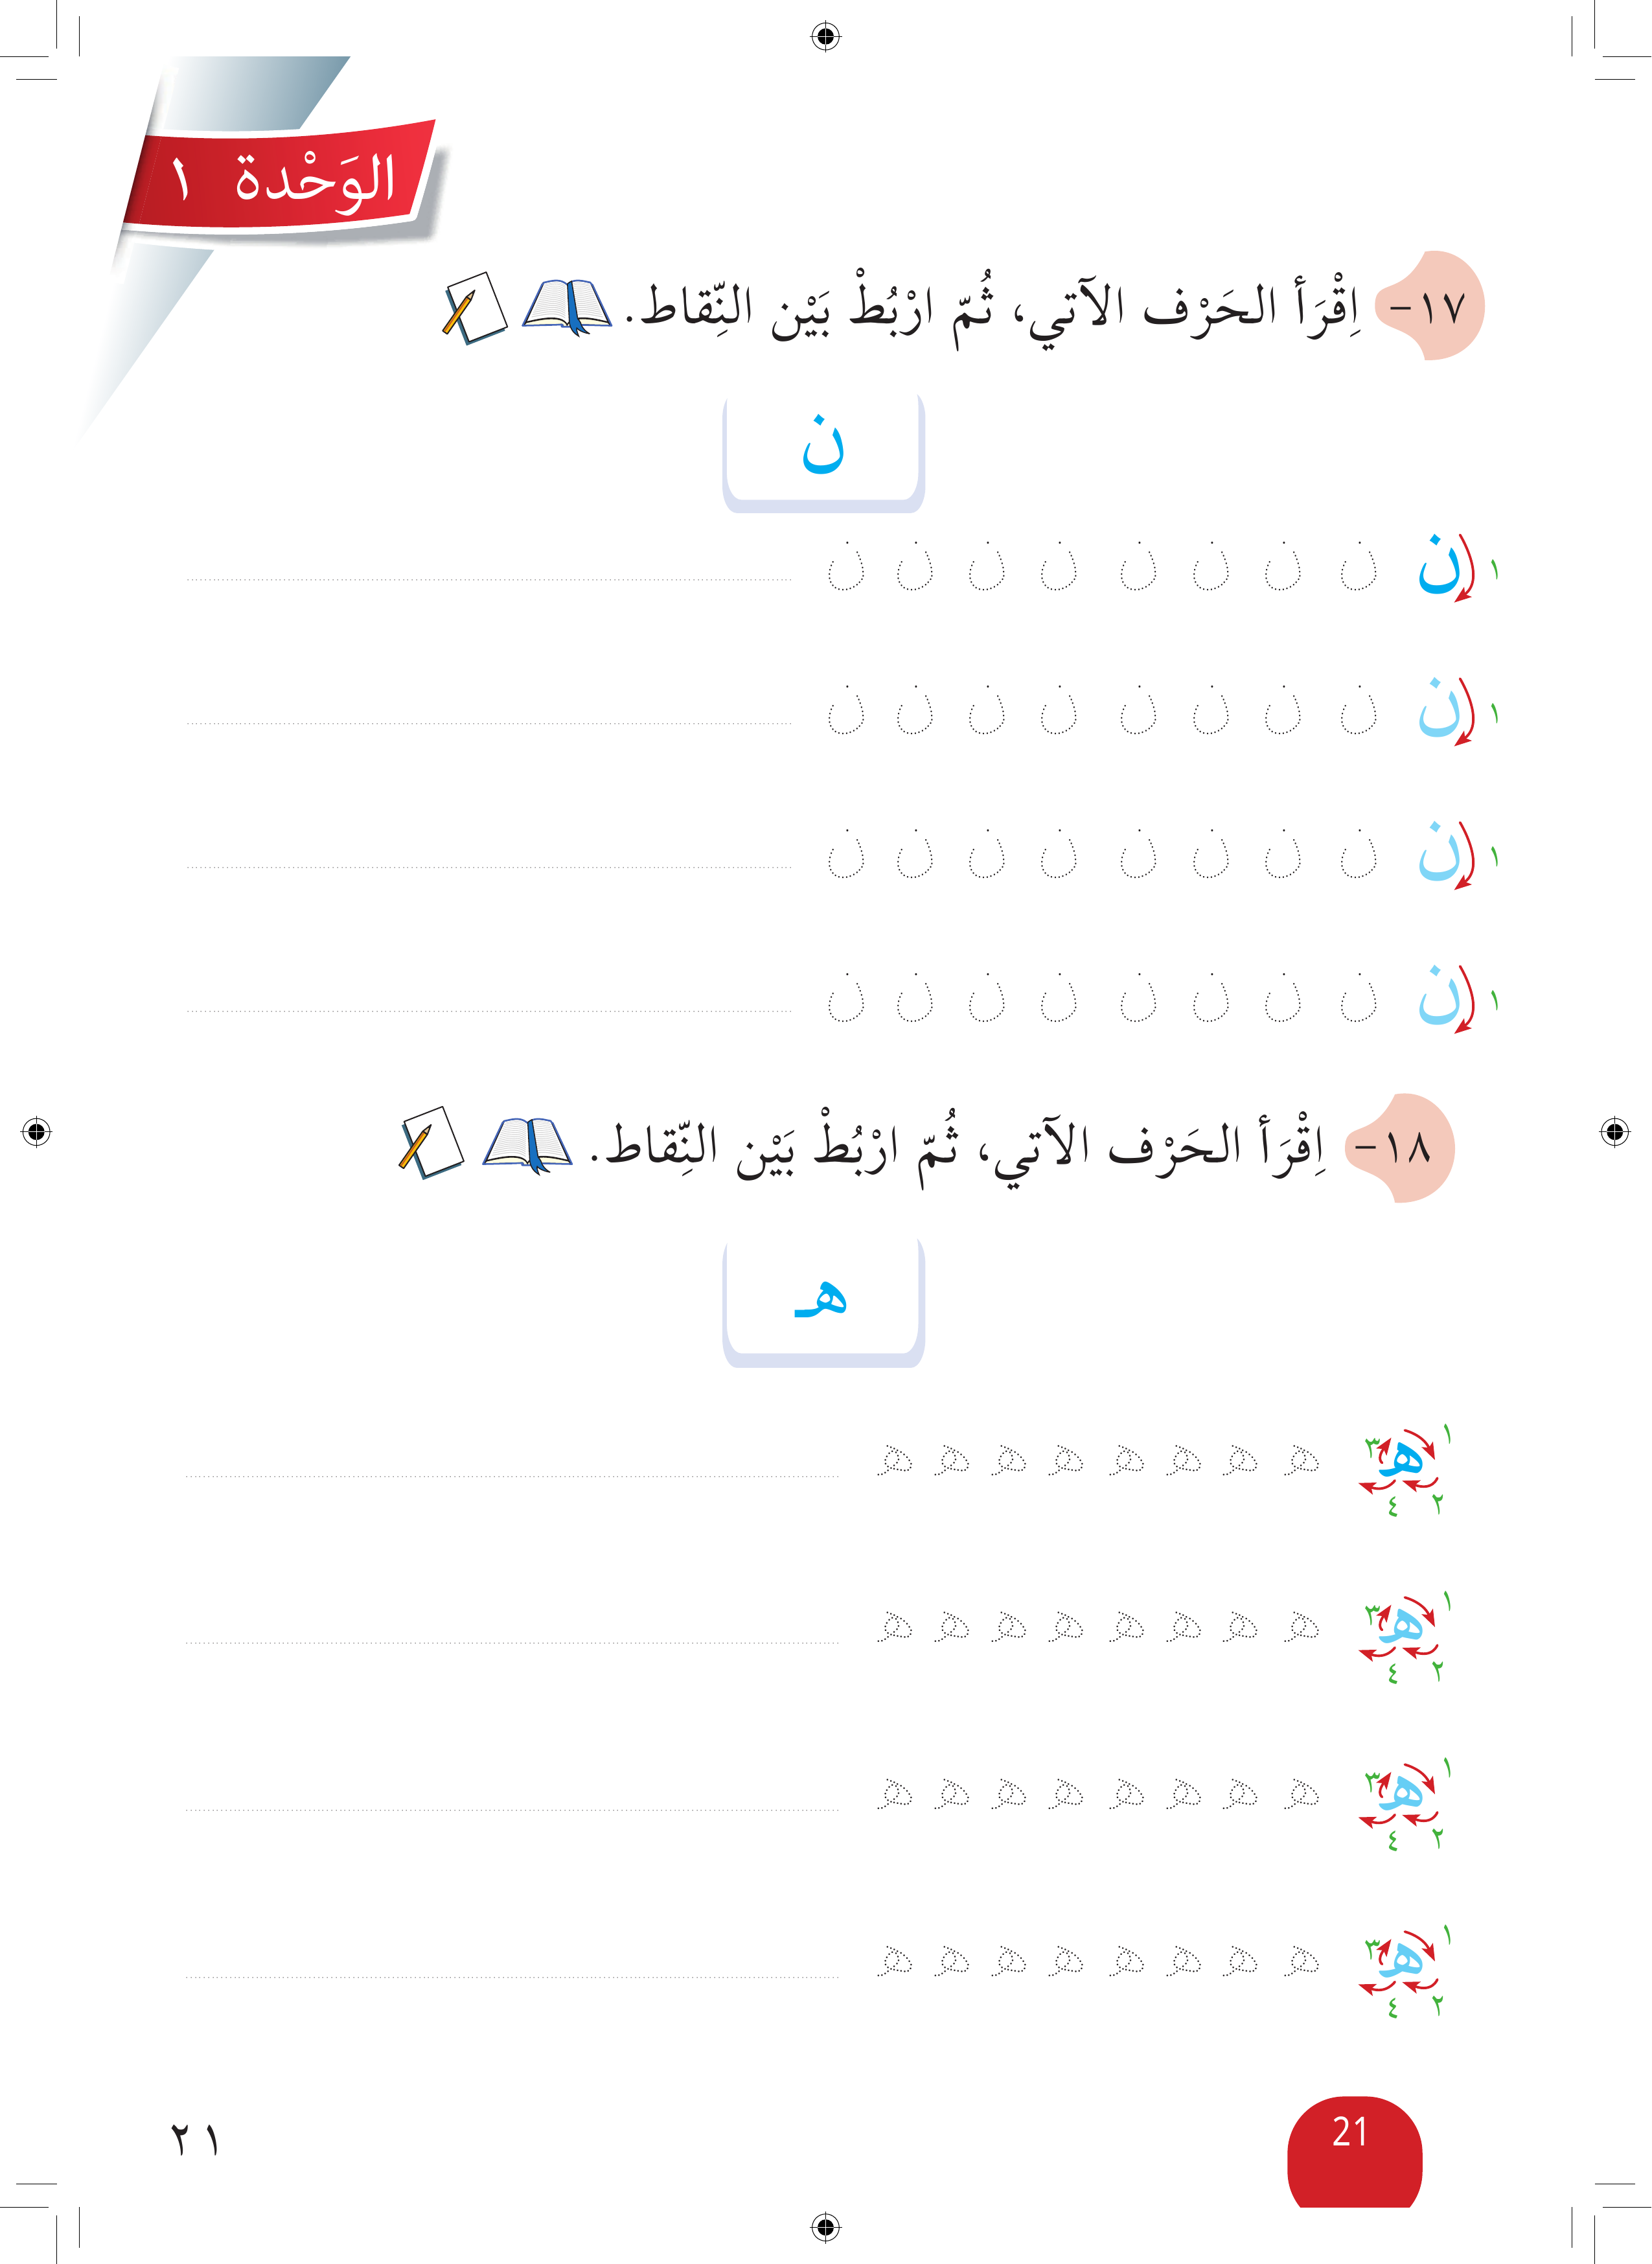 الوَحْدة ١
١٧- اِقْرَأ الحَرْف الآتي، ثُمّ ارْبُطْ بَيْن النِّقاط.
ن
١ ن ن ن ن ن ن ن ن ن
١ ن ن ن ن ن ن ن ن ن
١ ن ن ن ن ن ن ن ن ن
١ ن ن ن ن ن ن ن ن ن
١٨- اِقْرَأ الحَرْف الآتي، ثُمّ ارْبُطْ بَيْن النِّقاط.
هـ
١ ٣ هـ هـ هـ هـ هـ هـ هـ هـ هـ
٢ ٤
١ ٣ هـ هـ هـ هـ هـ هـ هـ هـ هـ
٢ ٤
١ ٣ هـ هـ هـ هـ هـ هـ هـ هـ هـ
٢ ٤
١ ٣ هـ هـ هـ هـ هـ هـ هـ هـ هـ
٢ ٤
21
٢١